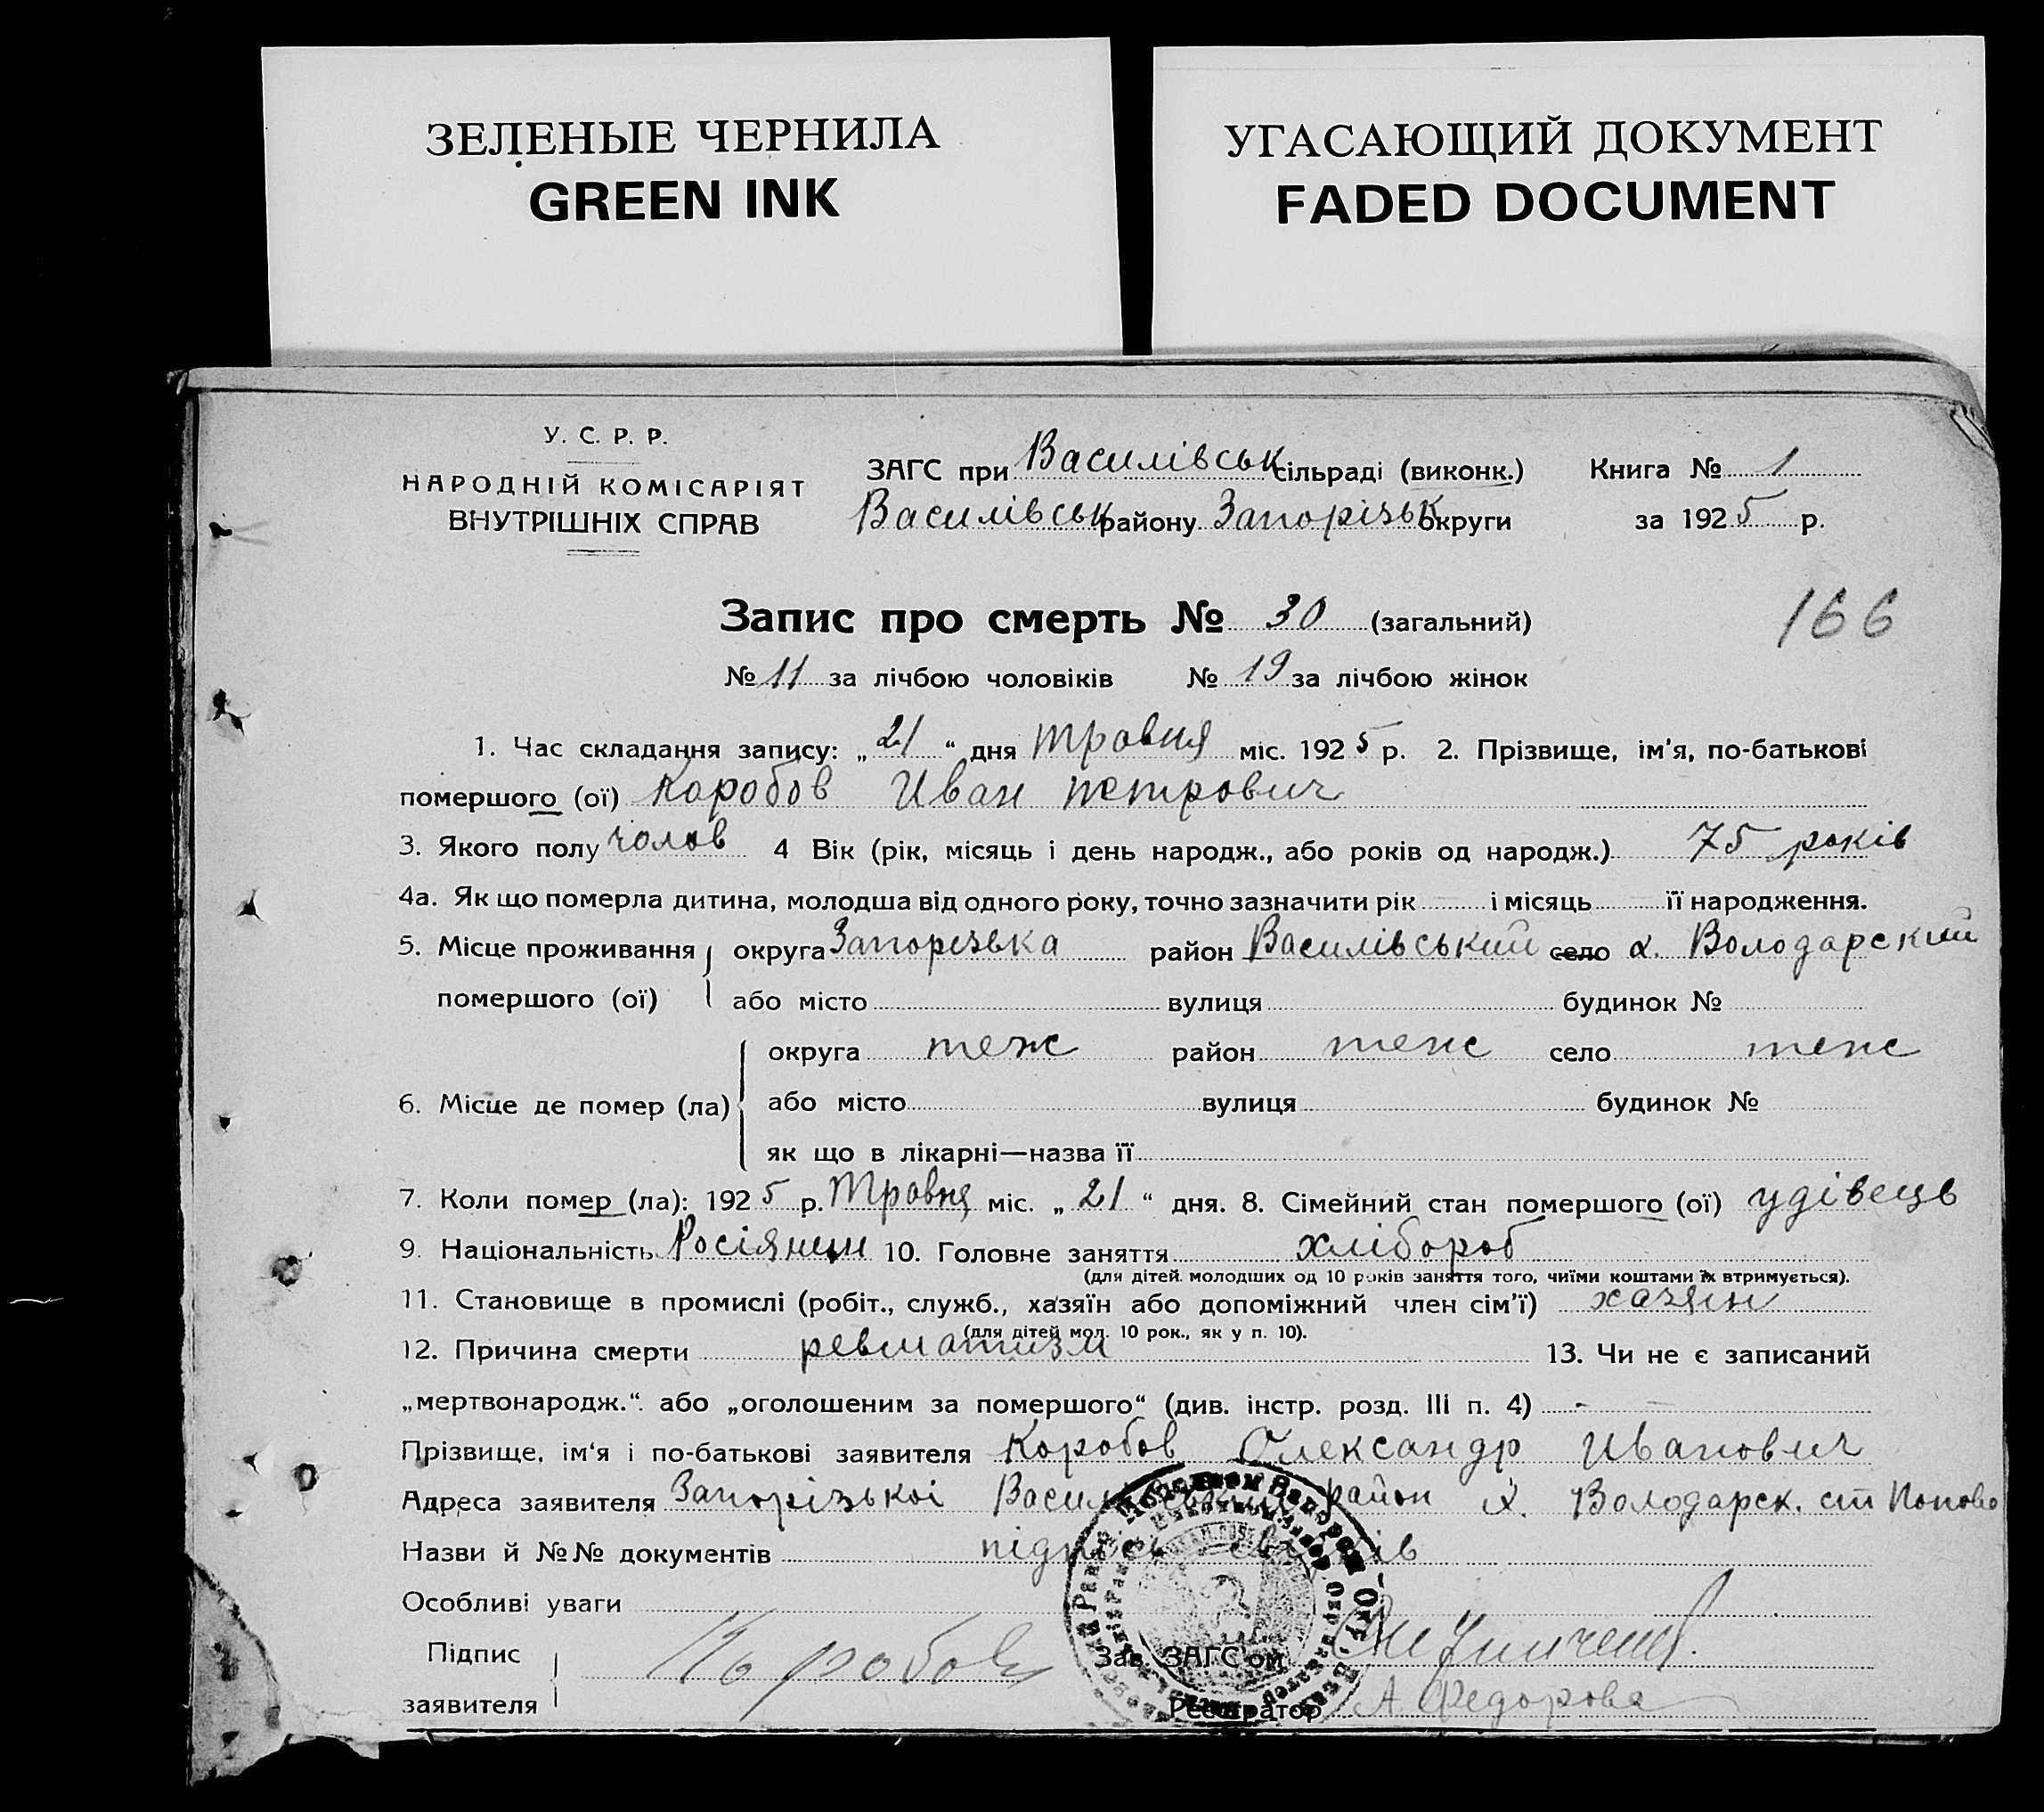 ЗЕЛЕНЫЕ ЧЕРНИЛА
GREEN INK
УГАСАЮЩИЙ ДОКУМЕНТ
FADED DOCUMENT
У. С. Р. Р.
НАРОДНІЙ КОМІСАРІЯТ
ВНУТРІШНІХ СПРАВ
ЗАГС при Василівськ сільраді (виконк.) Книга № 1
Василівськ району Запорізьк округи за 1925 р.
Запис про смерть № 30 (загальний)
166
№ 11 за лічбою чоловіків № 19 за лічбою жінок
1. Час складання запису: „21“ дня травня міс. 1925 р. 2. Прізвище, ім'я, по-батькові
помершого (ої) Коробов Иван петрович
3. Якого полу чолов 4 Вік (рік, місяць і день народж., або років од народж.) 75 років
4а. Як що померла дитина, молодша від одного року, точно зазначити рік і місяць її народження.
5. Місце проживання округа Запорізька район Василівський село х. Володарский
помершого (ої) або місто вулиця будинок №
округа теж район теж село теж
6. Місце де помер (ла) або місто вулиця будинок №
як що в лікарні—назва її
7. Коли помер (ла): 1925 р. травня міс. „21“ дня. 8. Сімейний стан помершого (ої) удівець
9. Національність Росіянин 10. Головне заняття хлібороб
(для дітей молодших од 10 років заняття того, чиїми коштами їх втримується).
11. Становище в промислі (робіт., служб., хазяїн або допоміжний член сім'ї) хазяін
(для дітей мол. 10 рок., як у п. 10).
12. Причина смерти ревматизм 13. Чи не є записаний
„мертвонародж.“ або „оголошеним за помершого“ (див. інстр. розд. III п. 4) -
Прізвище, ім'я і по-батькові заявителя Коробов Олександр Иванович
Адреса заявителя Запорізькоі Василівський район х. Володарск. ст Попово
Назви й №№ документів підпись свідків
Особливі уваги
Підпис Коробов Зав. ЗАГС'ом
заявителя Реєстратор А Федорова